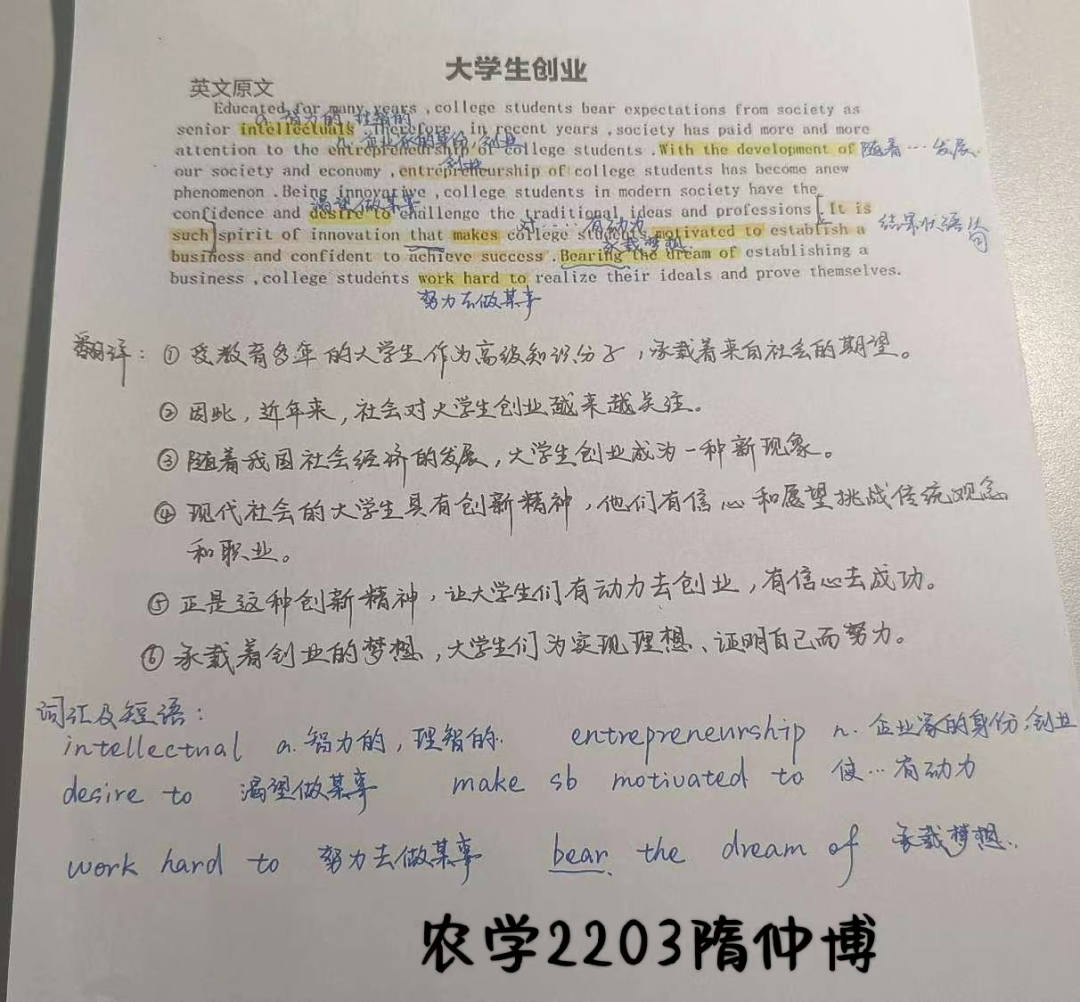 大学生创业
英文原文
Educated for many years ,college students bear expectations from society as
a. 智力的, 理智的
senior intellectuals .Therefore, in recent years ,society has paid more and more
n. 企业家的身份, 创业
attention to the entrepreneurship of college students .With the development of 随着…发展
创业
our society and economy ,entrepreneurship of college students has become anew
phenomenon .Being innovative ,college students in modern society have the
渴望做某事
confidence and desire to challenge the traditional ideas and professions [It is
使……有动力
such] spirit of innovation that makes college students motivated to establish a 结果状语从句
承载梦想
business and confident to achieve success .Bearing the dream of establishing a
business ,college students work hard to realize their ideals and prove themselves.
努力去做某事
翻译：① 受教育多年的大学生作为高级知识分子，承载着来自社会的期望。
② 因此，近年来，社会对大学生创业越来越关注。
③ 随着我国社会经济的发展，大学生创业成为一种新现象。
④ 现代社会的大学生具有创新精神，他们有信心和愿望挑战传统观念
和职业。
⑤ 正是这种创新精神，让大学生们有动力去创业，有信心去成功。
⑥ 承载着创业的梦想，大学生们为实现理想、证明自己而努力。
词汇及短语：
intellectual a. 智力的，理智的. entrepreneurship n. 企业家的身份；创业
desire to 渴望做某事 make sb motivated to 使…有动力
work hard to 努力去做某事 bear the dream of 承载梦想.
农学2203隋仲博